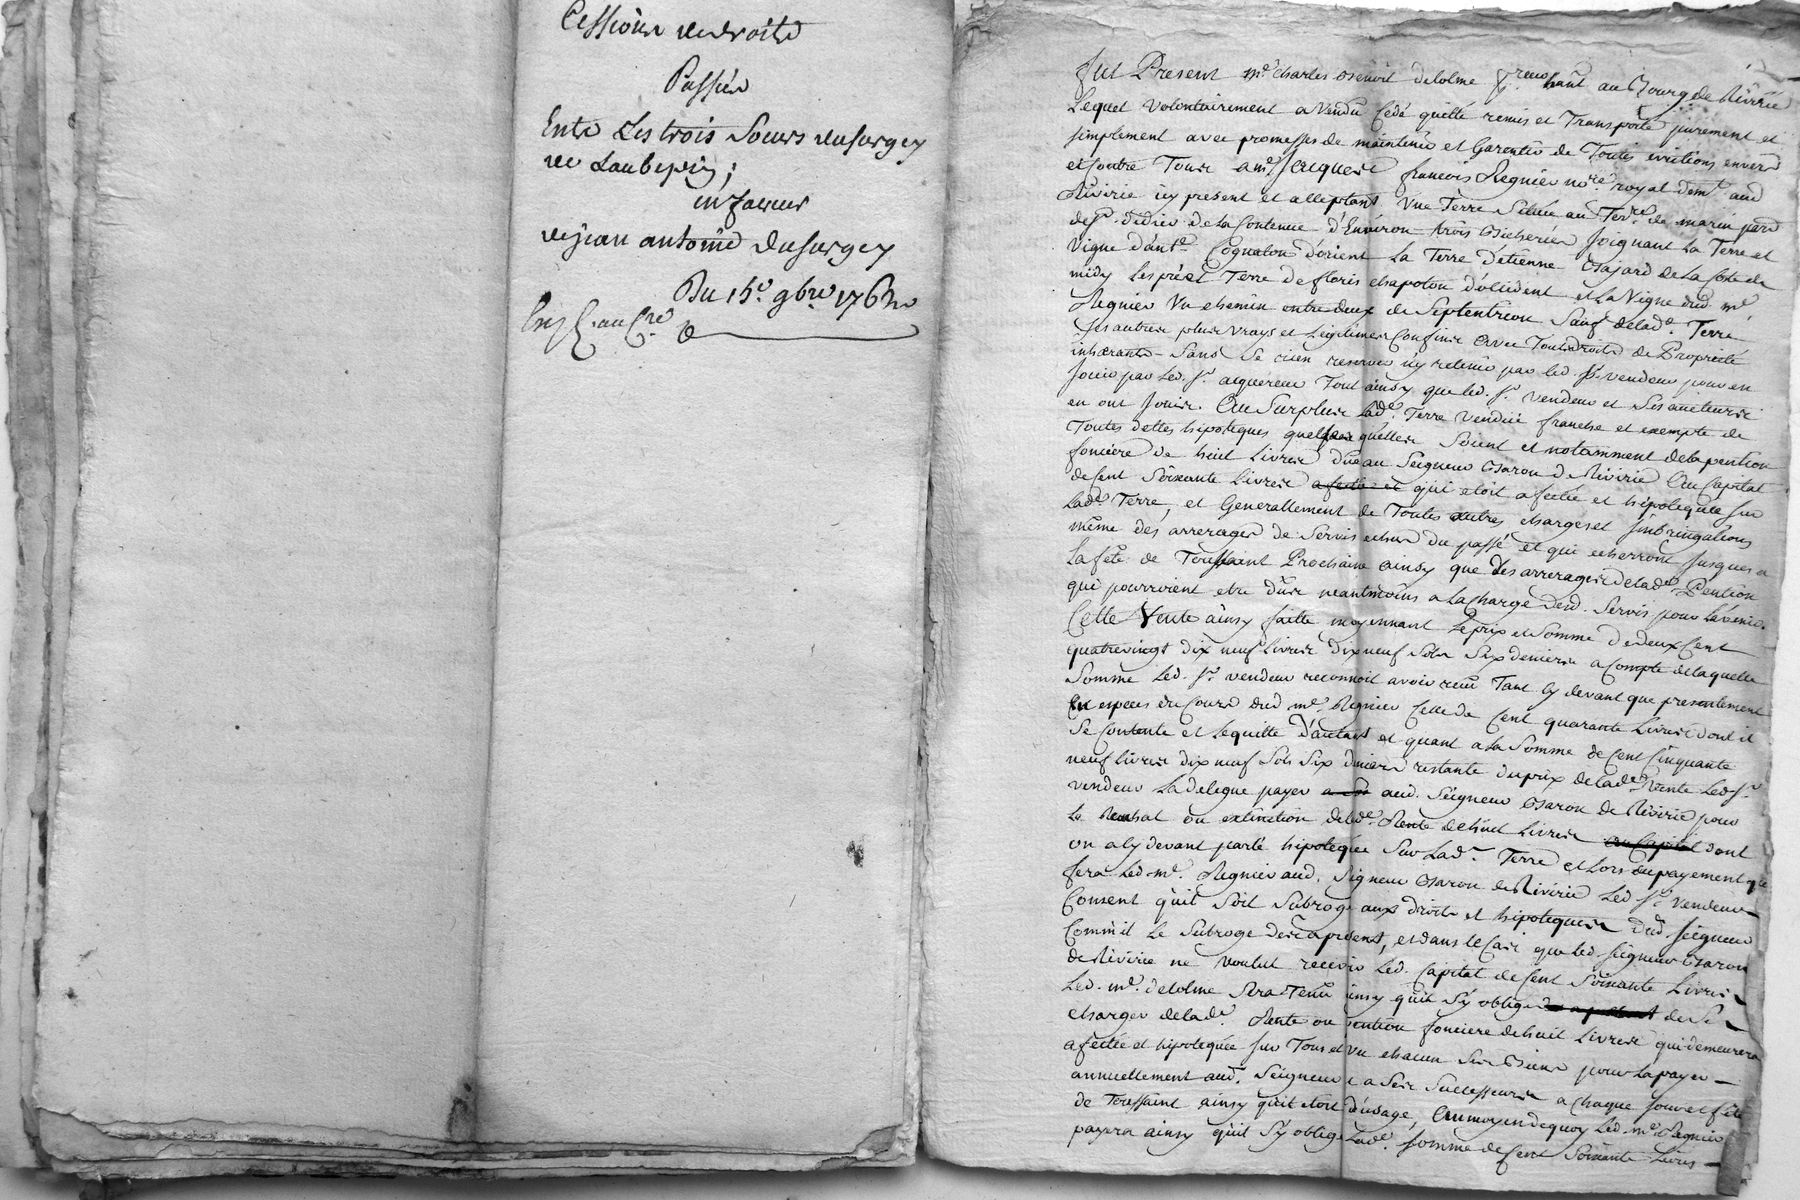 Cession de droits
Passée
Entre Les trois Soeurs dusurgey
de Laubepin;
en faveur
de jean antoine Dusurgey
Du 15e. 9bre 176
Fut Present Me. charles benoit delolme habitant au Bourg de Riverie
Lequel volontairement a vendu Cedé quitté remis et Transporté purement et
simplement avec promesses de maintenir et Garentir de Toutes evictions envers
et contre Tous a me. Jacques francois Regnier nore. royal demt. aud
Riverie icy present et acceptant Une Terre Scituée au Terre. de marin parse
de St. didier de la Contenue d'Environ trois Bicherées Joignant La Terre et
vigne d'ante. Cognaton d'orient La Terre d'etienne Bajard de La Coste de
midy Les prés et Terre de floris chapoton d'occident et La Vigne dud. me.
Regnier Un chemin entre deux de Septentrion Sauf de lade. Terre
ses autres plus vrays et Legitimes Confins avec Tous droits de Proprieté
inherants Sans Se rien reserver ny retenir par led. Sr. vendeur pour en
Jouir par Led. Sr. acquereur Tout ainsy que led. Sr. vendeur et Ses auteurs
en ont Jouis. Au Surplus Lade. Terre vendüe franche et exempte de
Toutes dettes hipoteques quelles quelles Soient et notamment de la pention
fonciere de huit Livres düe au Seigneur Baron de Riverie Au Capital
de Cent Soixante Livres a fectée et qui etoit afectée et hipotequée sur
Lade. Terre, et Generallement de Toutes autres charges et Imbringations
même des arrerages de Servis echus du passé et qui echerront Jusques a
La fête de Toussaint Prochaine ainsy que des arrerages de lade. Pention
qui pourroient etre dûs neantmoins a La Charge desd. Servis pour L'avenir.
Cette Vente ainsy faitte moyennant Le prix et Somme de deux Cent
quatrevingt dix neuf Livres dix neuf Sols Six deniers a Compte de laquelle
Somme Led. Sr. vendeur reconnoit avoir reçu Tant Cy devant que presentement
En especes du Cours dud. me. Regnier Celle de Cent quarante Livres dont il
Se Contente et Le quitte d'autant et quant a La Somme de Cent Cinquante
neuf livres dix neuf Sols Six deniers restante du prix de lade. Vente Led. Sr.
vendeur La delegue payer aud. Seigneur Baron de Riverie pour
Le Rachat ou extinction de lade. Rente de huit Livres au Capital dont
on a Cy devant parlé hipotequée Sur Lade. Terre et Lors du payement que
fera Led. me. Regnier aud. Seigneur Baron de Riverie Led. Sr. vendeur
Consent qu'il Soit Subrogé aux droits et hipoteques dud. Seigneur
Comm'il Le Subroge des apresent, et dans le Cas que led. Seigneur Baron
de Riverie ne voulut recevoir Led. Capital de Cent Soixante Livres
Led. me. delolme Sera Tenu ainsy qu'il S'y oblige de Se
charger de lade. Rente ou pention fonciere de huit Livres qui demeurera
afectée et hipotequée sur Tous et Un chacun Ses Biens pour La payer
annuellement aud. Seigneur et a Ses Successeurs a chaque Jour et fête
de Toussaint ainsy qu'il etoit d'usage, Au moyen de quoy Led. me. Regnier
payera ainsy qu'il S'y oblige Lade. Somme de Cent Soixante Livres